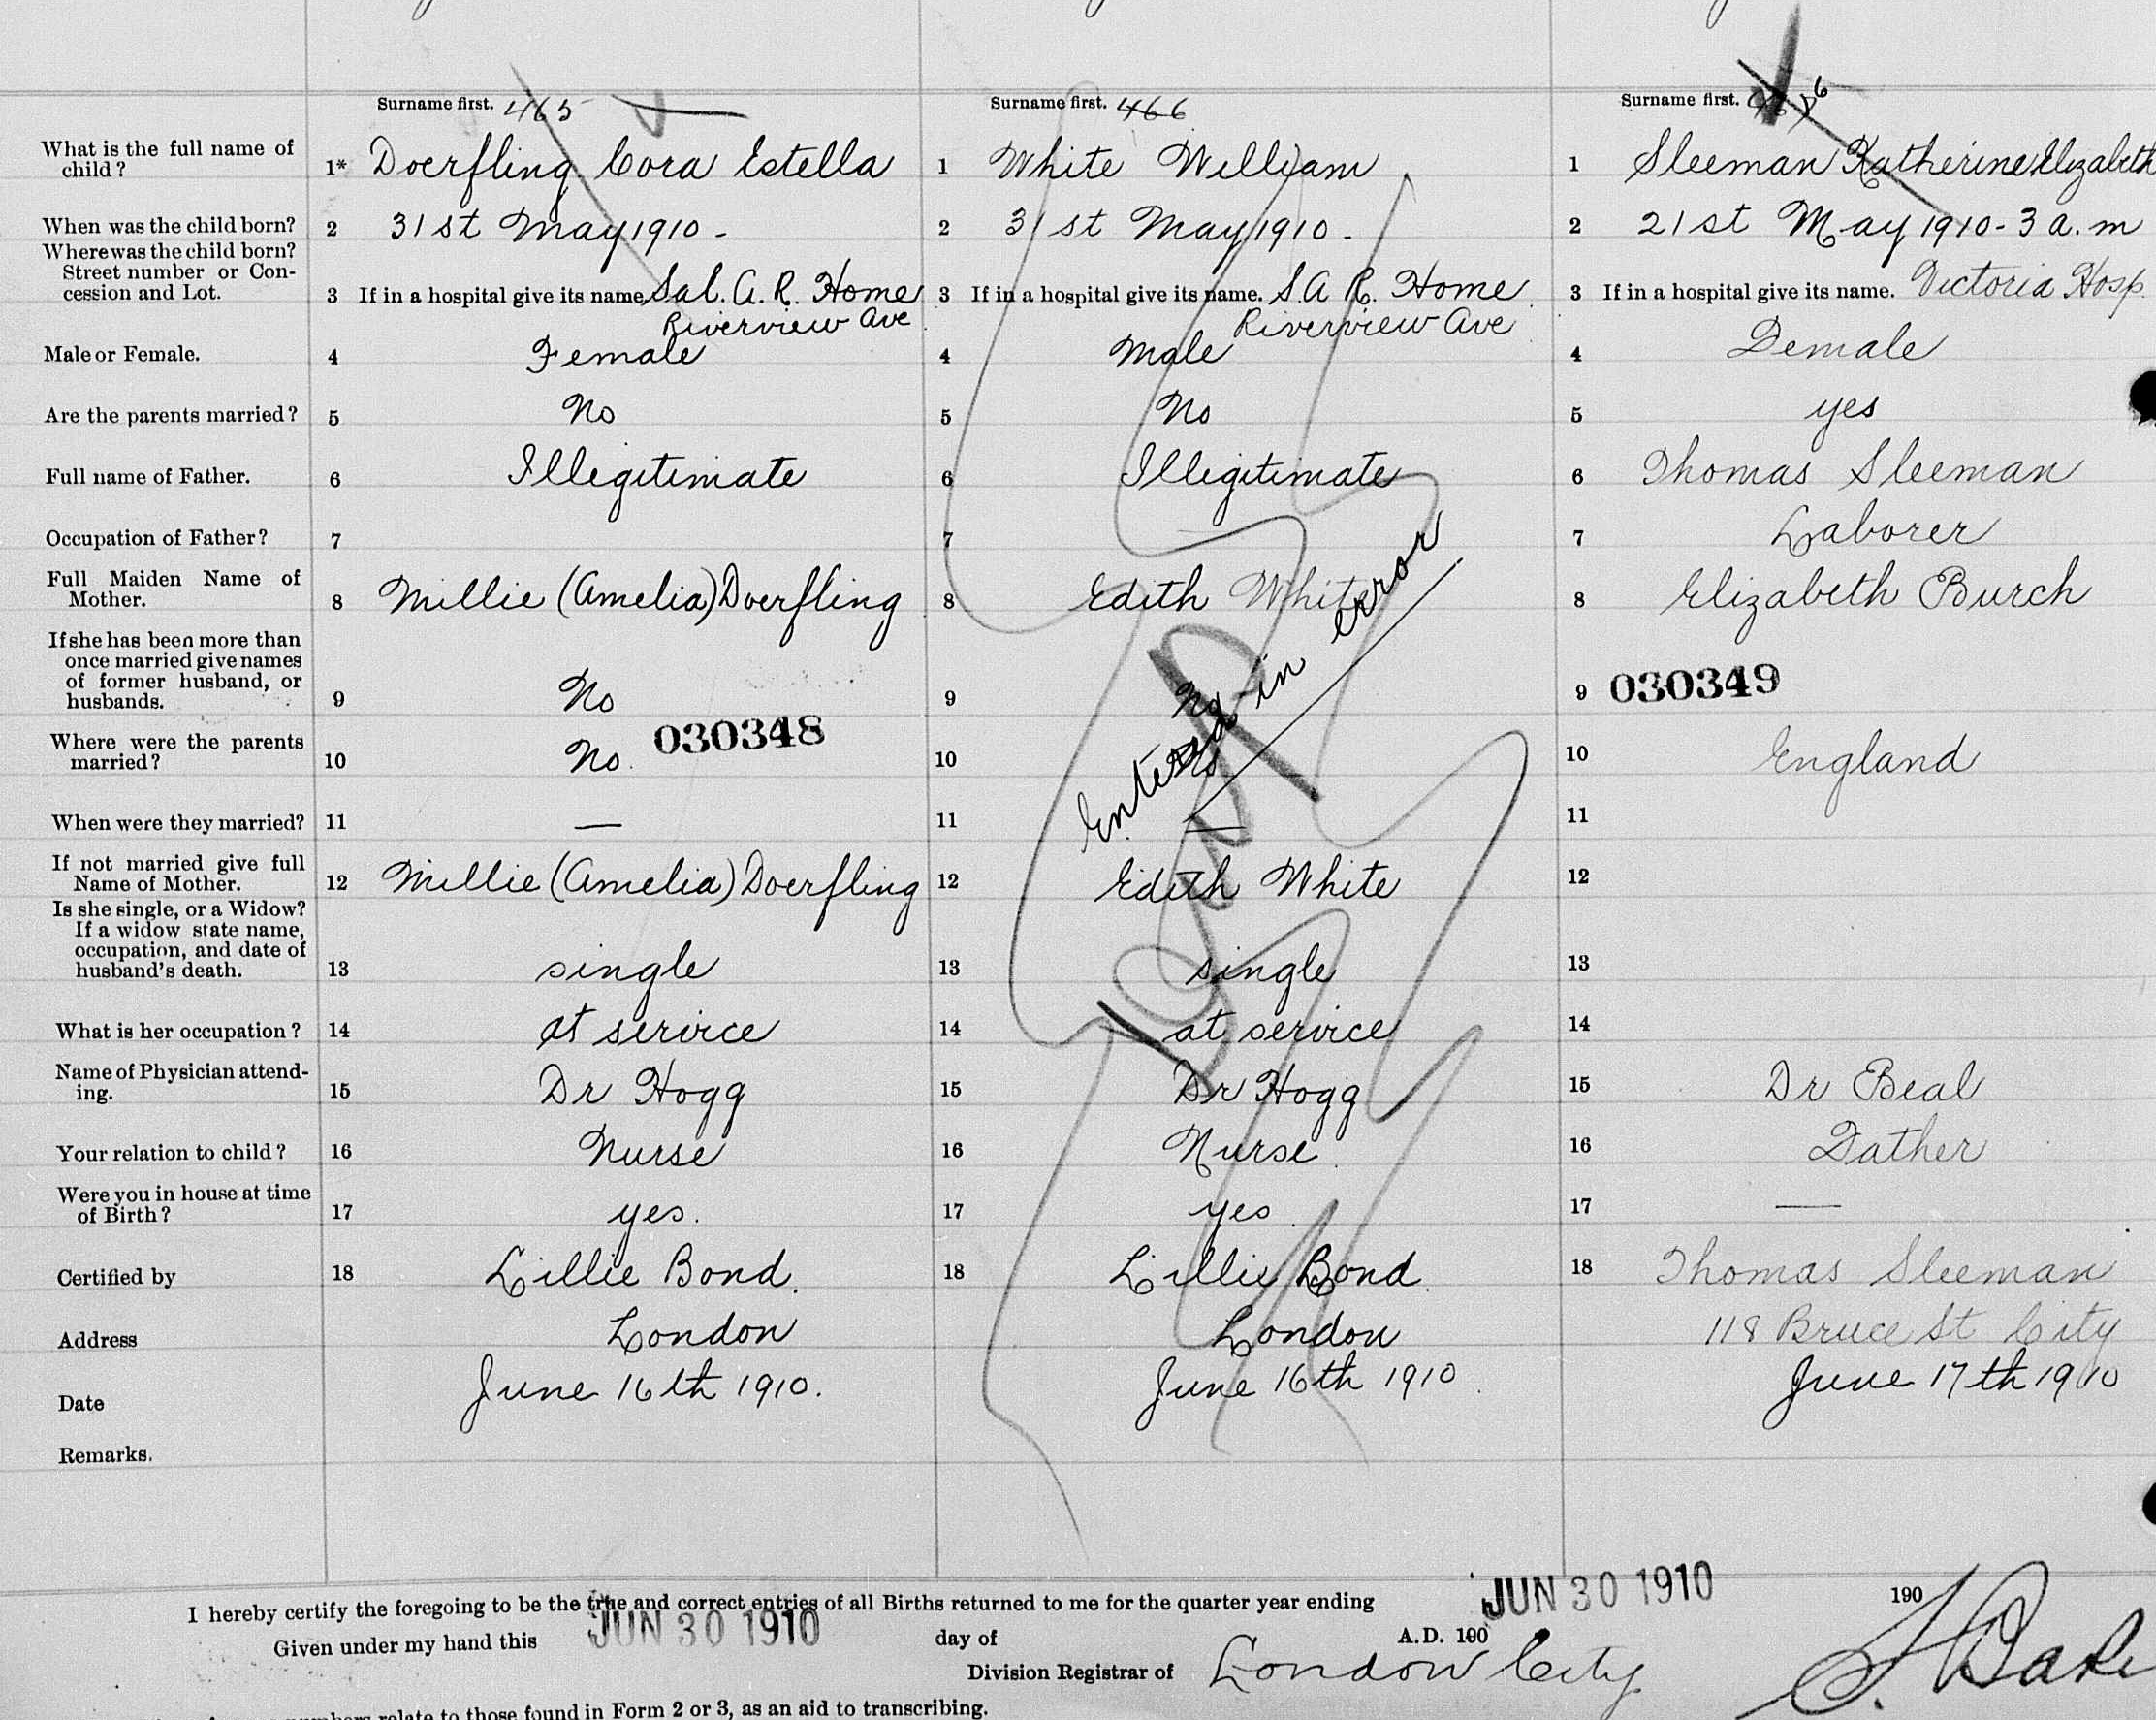 Surname first. 465
Surname first. 466
Surname first.
What is the full name of child? 1* Doerfling Cora Estella
1 White William
1 Sleeman Katherine Elizabeth
When was the child born? 2 31st May 1910 -
2 31st May 1910 -
2 21st May 1910 - 3 a.m
Where was the child born? Street number or Concession and Lot. 3 If in a hospital give its name. Sal. A. R. Home
Riverview Ave
3 If in a hospital give its name. S. A R. Home
Riverview Ave
3 If in a hospital give its name. Victoria Hosp
Male or Female. 4 Female
4 Male
4 Female
Are the parents married? 5 No
5 No
5 yes
Full name of Father. 6 Illegitimate
6 Illegitimate
6 Thomas Sleeman
Occupation of Father? 7
7
7 Laborer
Full Maiden Name of Mother. 8 Millie (Amelia) Doerfling
8 Edith White
8 Elizabeth Burch
If she has been more than once married give names of former husband, or husbands. 9 No
9 No
9 030349
Where were the parents married? 10 No. 030348
10 No
10 England
Entered in error
When were they married? 11 —
11 —
11
If not married give full Name of Mother. 12 Millie (Amelia) Doerfling
12 Edith White
12
Is she single, or a Widow? If a widow state name, occupation, and date of husband's death. 13 single
13 single
13
What is her occupation? 14 at service
14 at service
14
Name of Physician attending. 15 Dr Hogg
15 Dr Hogg
15 Dr Beal
Your relation to child? 16 Nurse
16 Nurse
16 Father
Were you in house at time of Birth? 17 yes.
17 yes
17 —
Certified by 18 Lillie Bond.
18 Lillie Bond
18 Thomas Sleeman
Address London
London
118 Bruce St City
Date June 16th 1910.
June 16th 1910
June 17th 1910
Remarks.
I hereby certify the foregoing to be the true and correct entries of all Births returned to me for the quarter year ending JUN 30 1910 190
Given under my hand this JUN 30 1910 day of A.D. 190
Division Registrar of London City
numbers relate to those found in Form 2 or 3, as an aid to transcribing.